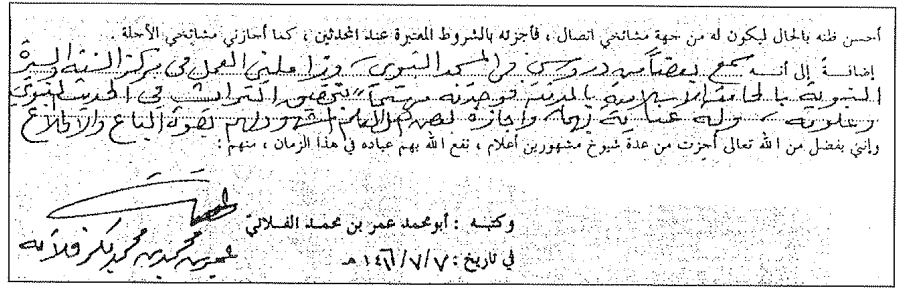 أحسن ظنه بالحال ليكون له من جهة مشائخي اتصال ، فأجزته بالشروط المعتبرة عند المحدثين ، كما أجازني مشائخي الأجلة .
إضافةً إلى أنه سمع بعضاً من دروسي في المسجد النبوي، وزاملني العمل في مركز السنة والسيرة
النبوية بالجامعة الإسلامية بالمدينة فوجدته مهتماً بتحقيق التراث في الحديث النبوي
وعلومه، وله عناية بهما، وأجازه بعض أهل العلم المشهود لهم بقوة الباع والاطلاع
وإنني بفضل من الله تعالى أجزت من عدة شيوخ مشهورين أعلام ، نفع الله بهم عباده في هذا الزمان ، منهم :
وكتبه : أبو محمد عمر بن محمد الفلاني
عمر بن محمد بن محمد بكر فلاته
في تاريخ : ٧/٧/ هـ